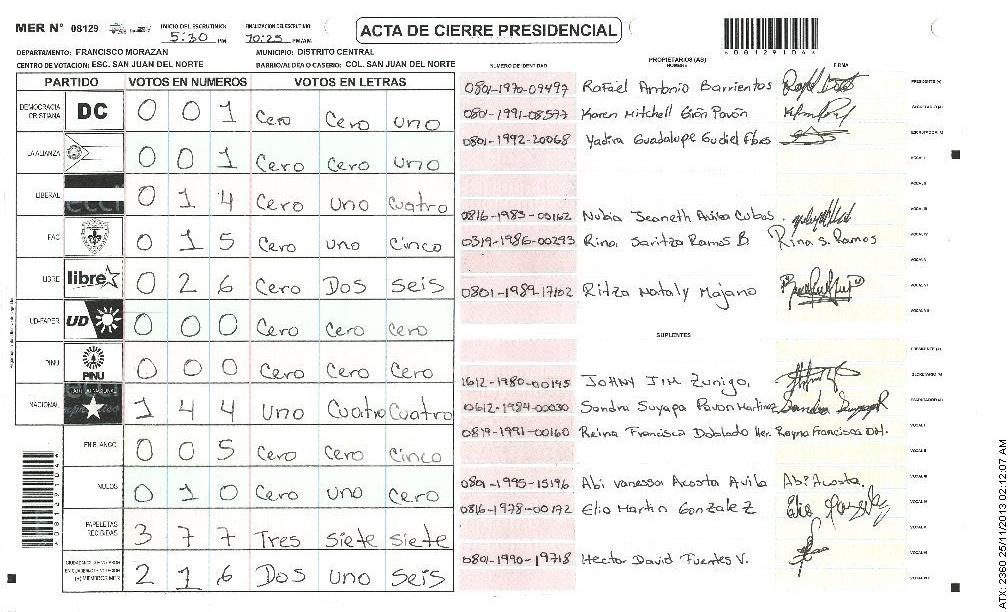 MER N° 08129
INICIO DEL ESCRUTINIO:
5:30 PM
FINALIZACION DEL ESCRUTINIO:
10:25 PM/AM
ACTA DE CIERRE PRESIDENCIAL
DEPARTAMENTO: FRANCISCO MORAZAN
MUNICIPIO: DISTRITO CENTRAL
CENTRO DE VOTACION: ESC. SAN JUAN DEL NORTE
BARRIO/ALDEA O CASERIO: COL. SAN JUAN DEL NORTE
PARTIDO VOTOS EN NUMEROS VOTOS EN LETRAS
DEMOCRACIA CRISTIANA DC 0 0 1 Cero Cero uno
LA ALIANZA 0 0 1 Cero Cero uno
LIBERAL 0 1 4 Cero uno cuatro
PAC 0 1 5 Cero uno cinco
LIBRE libre 0 2 6 Cero Dos seis
UD-FAPER UD 0 0 0 Cero Cero cero
PINU PINU 0 0 0 Cero Cero Cero
NACIONAL 1 4 4 Uno Cuatro Cuatro
EN BLANCO 0 0 5 Cero Cero cinco
NULOS 0 1 0 Cero uno Cero
PAPELETAS RECIBIDAS 3 7 7 Tres siete siete
2 1 6 Dos uno seis
NUMERO DE IDENTIDAD
PROPIETARIOS (AS)
NOMBRE
FIRMA
0801-1970-09497 Rafael Antonio Barrientos
0801-1991-08577 Karen Mitchell Girón Pavón
0801-1992-20068 Yadira Guadalupe Gudiel
0816-1983-00162 Nubia Jeaneth Avila Cubas
0319-1986-00293 Rina Saritza Ramos B Rina S. Ramos
0801-1989-17102 Ritza Nataly Majano
SUPLENTES
1612-1980-00145 JOHNY JIM Zuniga
0612-1984-00030 Sandra Suyapa Pavon Martinez
0819-1991-00160 Reina Francisca Doblado Her. Reyna Francisca DH.
0801-1995-15196 Abi vanessa Acosta Avila Abi Acosta.
0816-1978-00172 Elio Martin Gonzalez
0801-1990-19718 Hector David Fuentes V.
ATX: 2360 25/11/2013 02:12:07 AM